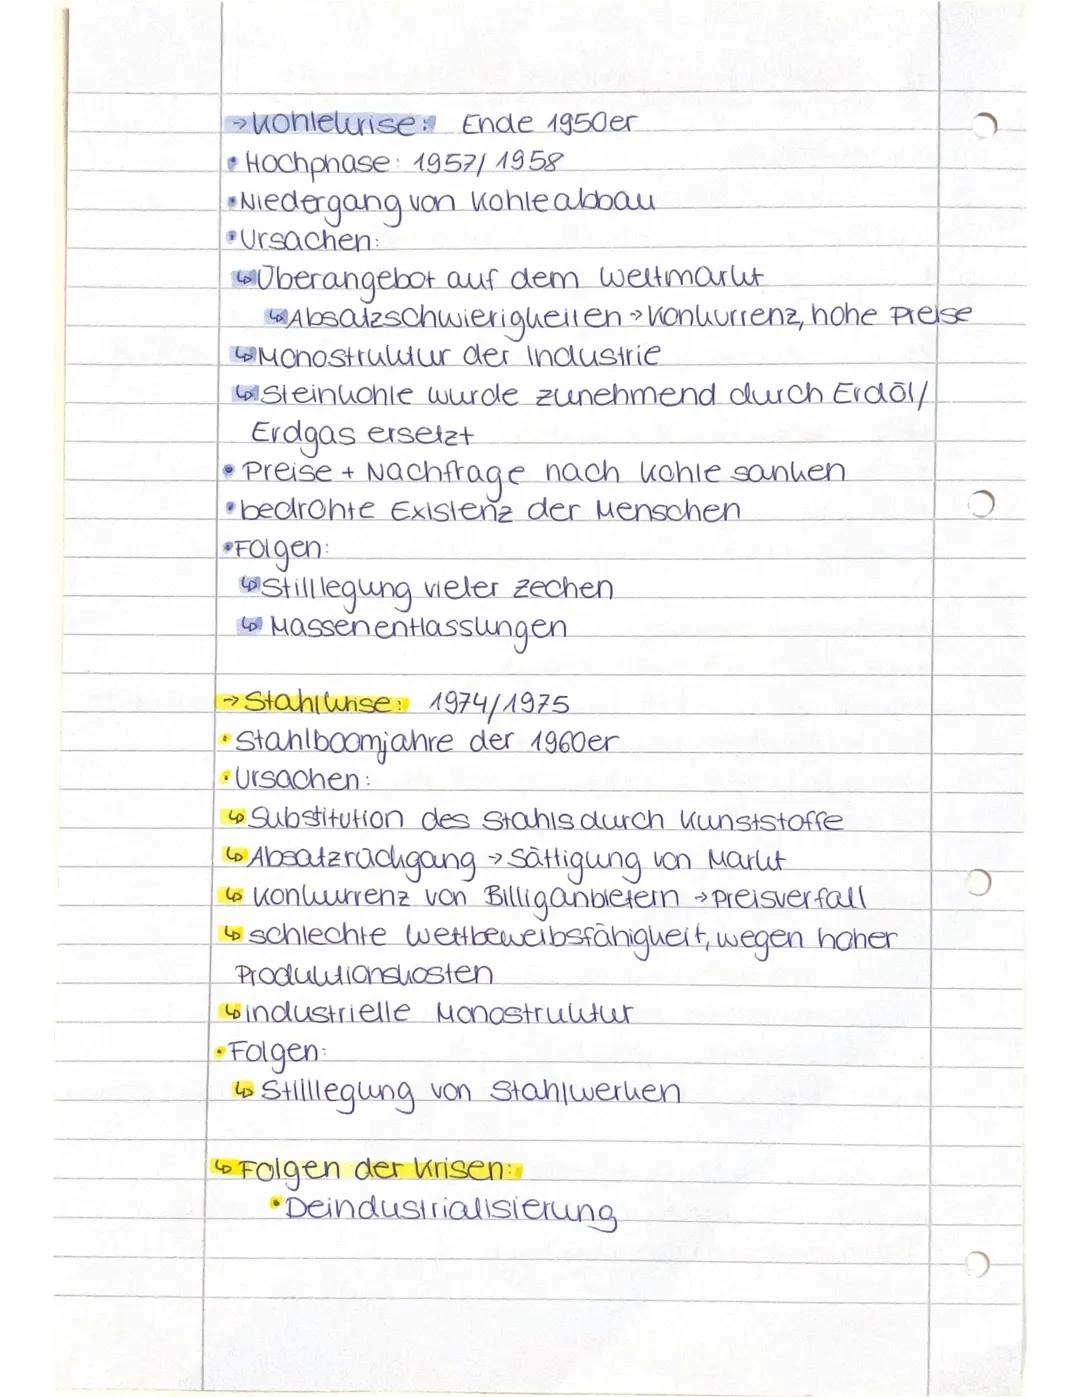 →Kohlekrise: Ende 1950er
• Hochphase: 1957/1958
• Niedergang von Kohleabbau
• Ursachen:
↳ Überangebot auf dem Weltmarkt
↳ Absatzschwierigkeiten → Konkurrenz, hohe Preise
↳ Monostruktur der Industrie
↳ Steinkohle wurde zunehmend durch Erdöl/
Erdgas ersetzt
• Preise + Nachfrage nach Kohle sanken
• bedrohte Existenz der Menschen
• Folgen:
↳ Stilllegung vieler Zechen
↳ Massenentlassungen
→ Stahlkrise: 1974/1975
• Stahlboomjahre der 1960er
• Ursachen:
↳ Substitution des Stahls durch Kunststoffe
↳ Absatzrückgang → Sättigung von Markt
↳ Konkurrenz von Billiganbietern → Preisverfall
↳ schlechte Wettbeweibsfähigkeit, wegen hoher
Produktionskosten
↳ industrielle Monostruktur
• Folgen:
↳ Stilllegung von Stahlwerken
↳ Folgen der Krisen:
• Deindustrialisierung